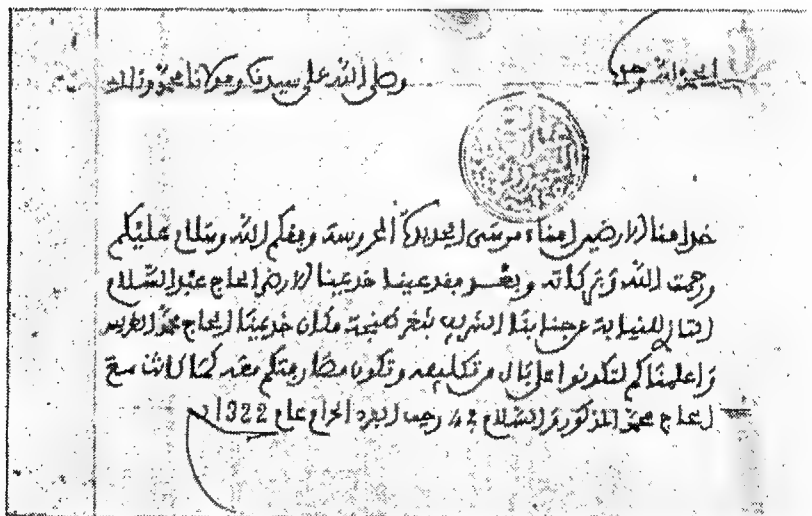 الحمد لله وحده
وصلى الله على سيدنا ومولانا محمد وآله
خدامنا الارضين امناء مرسى الجديدة المحروسة وفقكم الله وسلام عليكم
ورحمت الله وبركاته وبعد فقد عينا خديمنا الارضى الحاج عبد السلام
التازى للنيابة عن جنابنا الشريف بثغر طنجة مكان خديمنا الحاج محمد الطريس
واعلمناكم لتكونوا على بال من تكليفه وتكون مصارفتكم معه كما كانت مع
الحاج محمد المذكور والسلام في رجب الفرد الحرام عام 1322